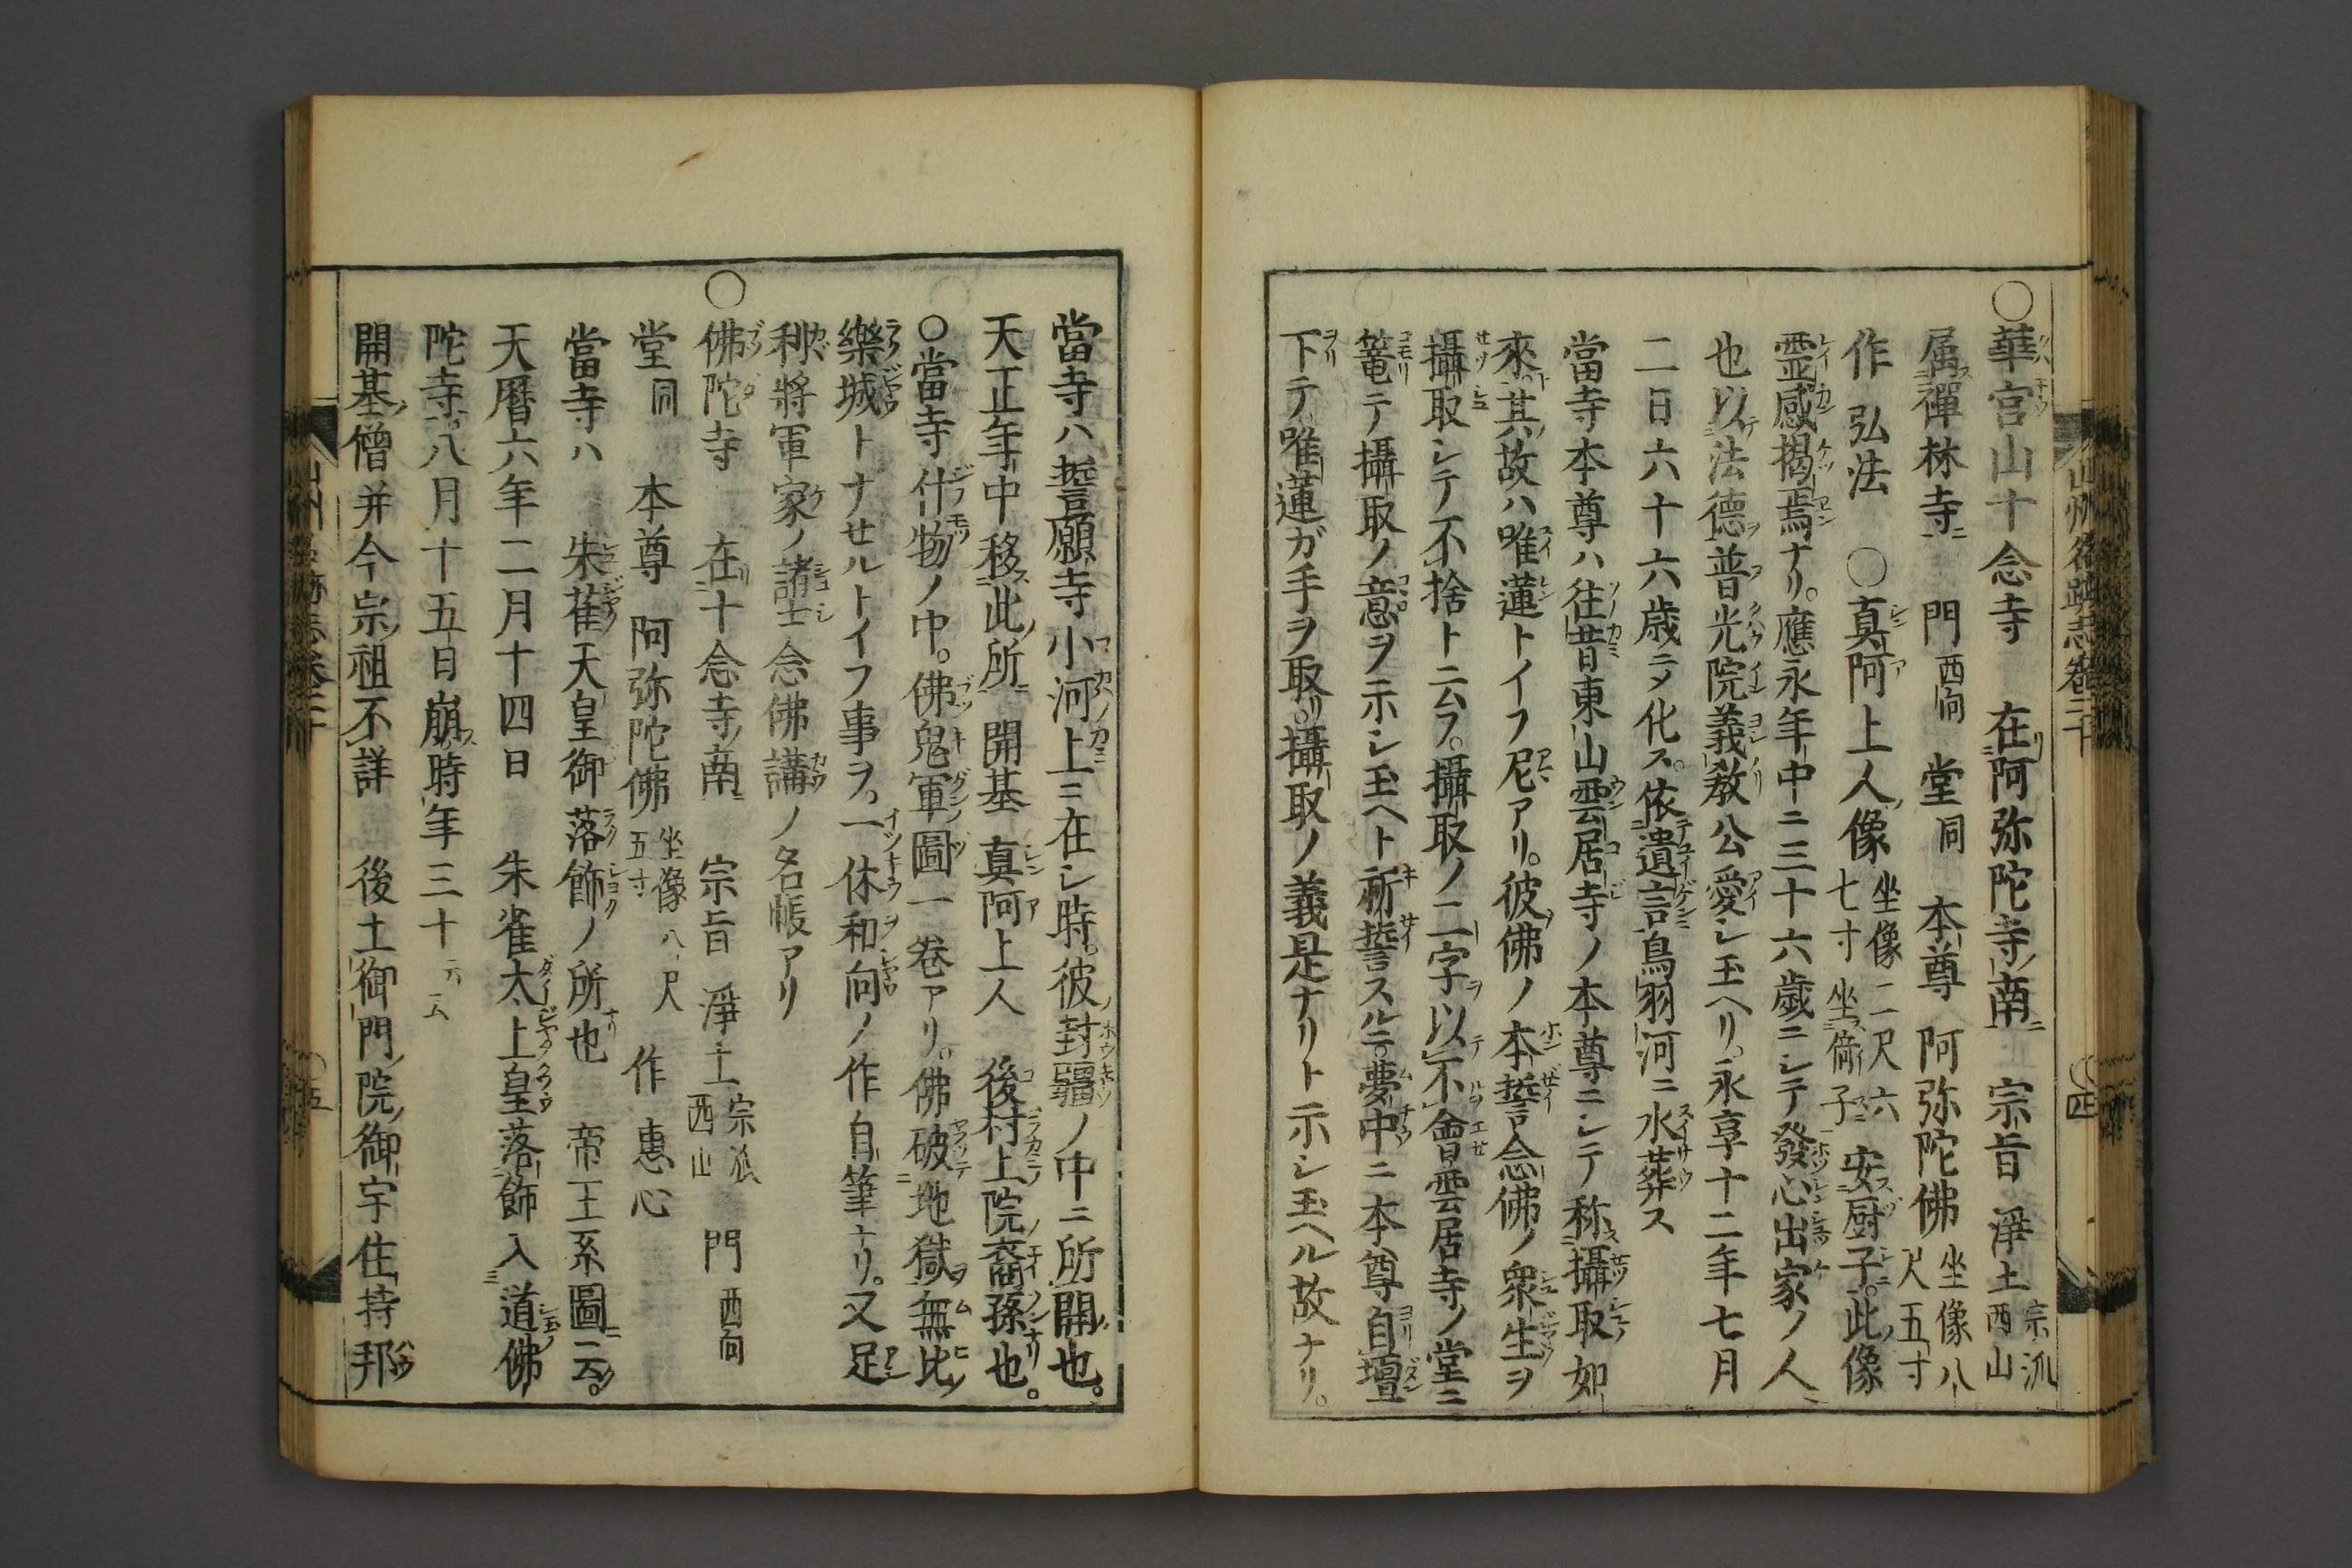 山州名跡志卷二十
四
○華宮山十念寺 在阿弥陀寺南 宗旨 淨土 宗派西山
属禪林寺 門 西向 堂 同 本尊 阿弥陀佛 坐像八尺五寸
作 弘法 ○真阿上人像 坐像二尺六七寸坐倚子 安厨子。此像
霊感掲焉ナリ。應永年中ニ三十六歲ニシテ發心出家ノ人
也以法德普光院義教公愛シ玉ヘリ。永享十二年七月
二日六十六歳ニヲ化ス。依遺言鳥羽河ニ水葬ス
當寺本尊ハ往昔東山雲居寺ノ本尊ニシテ称攝取如
來。其故ハ唯蓮トイフ尼アリ。彼佛ノ本誓念佛ノ衆生ヲ
攝取シテ不捨トニムフ。攝取ノ二字以不會雲居寺ノ堂ニ
篭テ攝取ノ意ヲ示シ玉ヘト祈誓スルニ夢中ニ本尊自壇
下テ唯蓮ガ手ヲ取リ。攝取ノ義是ナリト示シ玉ヘル故ナリ。
當寺ハ誓願寺小河上ニ在シ時。彼封疆ノ中ニ所開也。
天正年中移此所 開基 真阿上人 後村上院裔孫也。
○當寺什物ノ中。佛鬼軍圖一卷アリ。佛破地獄無比
樂城トナセルトイフ事ヲ。一休和向ノ作自筆ナリ。又足
利將軍家ノ諸士念佛講ノ名帳アリ
○佛陀寺 在十念寺南 宗旨 淨土 宗派西山 門 西向
堂 同 本尊 阿弥陀佛 坐像八尺五寸 作 惠心
當寺ハ 朱雀天皇御落飾ノ所也 帝王系圖云。
天暦六年二月十四日 朱雀太上皇落飾入道佛
陀寺。八月十五日崩時年三十云云
開基僧并今宗祖不詳 後土御門院御宇住持邦
山州名跡志卷二十
五